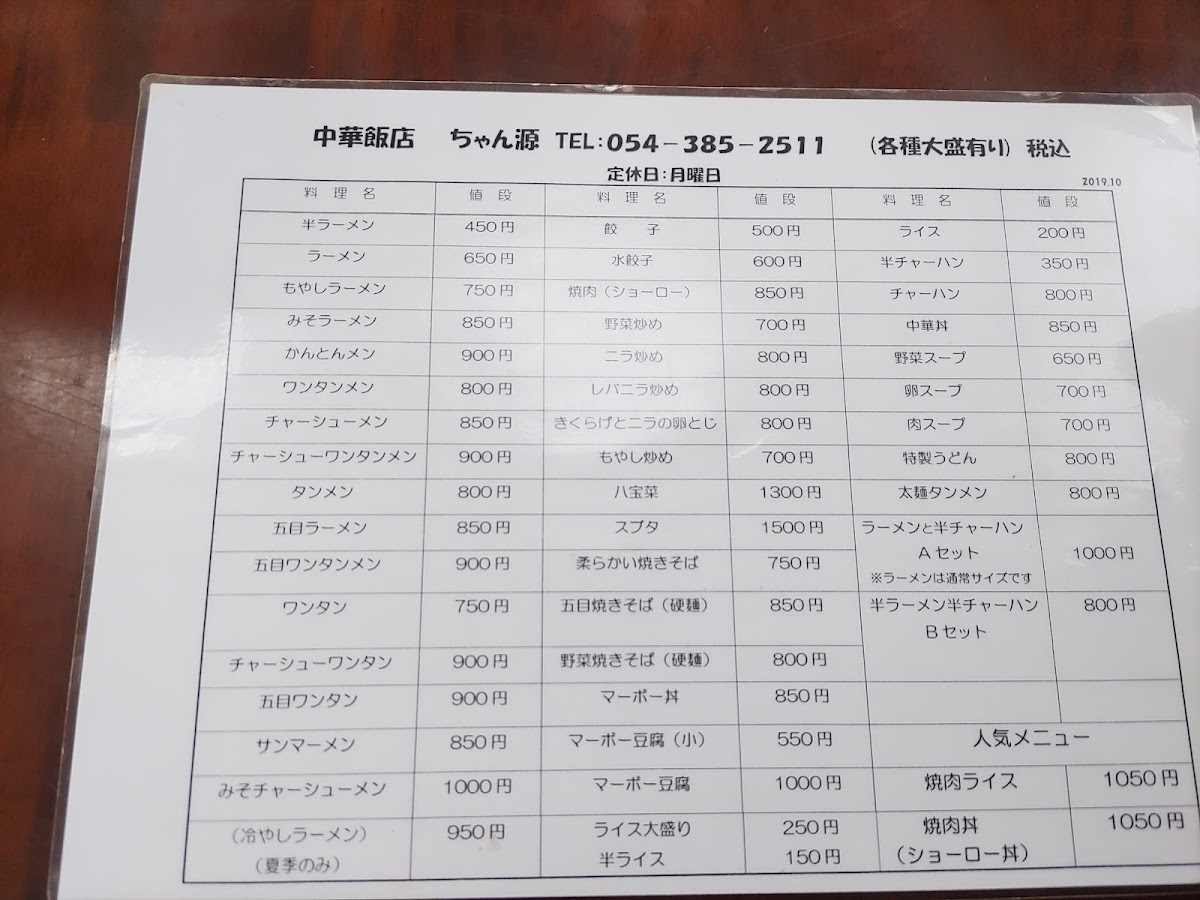 中華飯店 ちゃん源 TEL:054-385-2511 (各種大盛有り) 税込
定休日:月曜日
2019.10
料理名 値段 料理名 値段 料理名 値段
半ラーメン 450円 餃子 500円 ライス 200円
ラーメン 650円 水餃子 600円 半チャーハン 350円
もやしラーメン 750円 焼肉(ショーロー) 850円 チャーハン 800円
みそラーメン 850円 野菜炒め 700円 中華丼 850円
かんとんメン 900円 ニラ炒め 800円 野菜スープ 650円
ワンタンメン 800円 レバニラ炒め 800円 卵スープ 700円
チャーシューメン 850円 きくらげとニラの卵とじ 800円 肉スープ 700円
チャーシューワンタンメン 900円 もやし炒め 700円 特製うどん 800円
タンメン 800円 八宝菜 1300円 太麺タンメン 800円
五目ラーメン 850円 スブタ 1500円 ラーメンと半チャーハン
Aセット 1000円
※ラーメンは通常サイズです
五目ワンタンメン 900円 柔らかい焼きそば 750円
ワンタン 750円 五目焼きそば(硬麺) 850円 半ラーメン半チャーハン 800円
Bセット
チャーシューワンタン 900円 野菜焼きそば(硬麺) 800円
五目ワンタン 900円 マーボー丼 850円
サンマーメン 850円 マーボー豆腐(小) 550円 人気メニュー
みそチャーシューメン 1000円 マーボー豆腐 1000円 焼肉ライス 1050円
(冷やしラーメン) 950円 ライス大盛り 250円 焼肉丼 1050円
(夏季のみ) 半ライス 150円 (ショーロー丼)